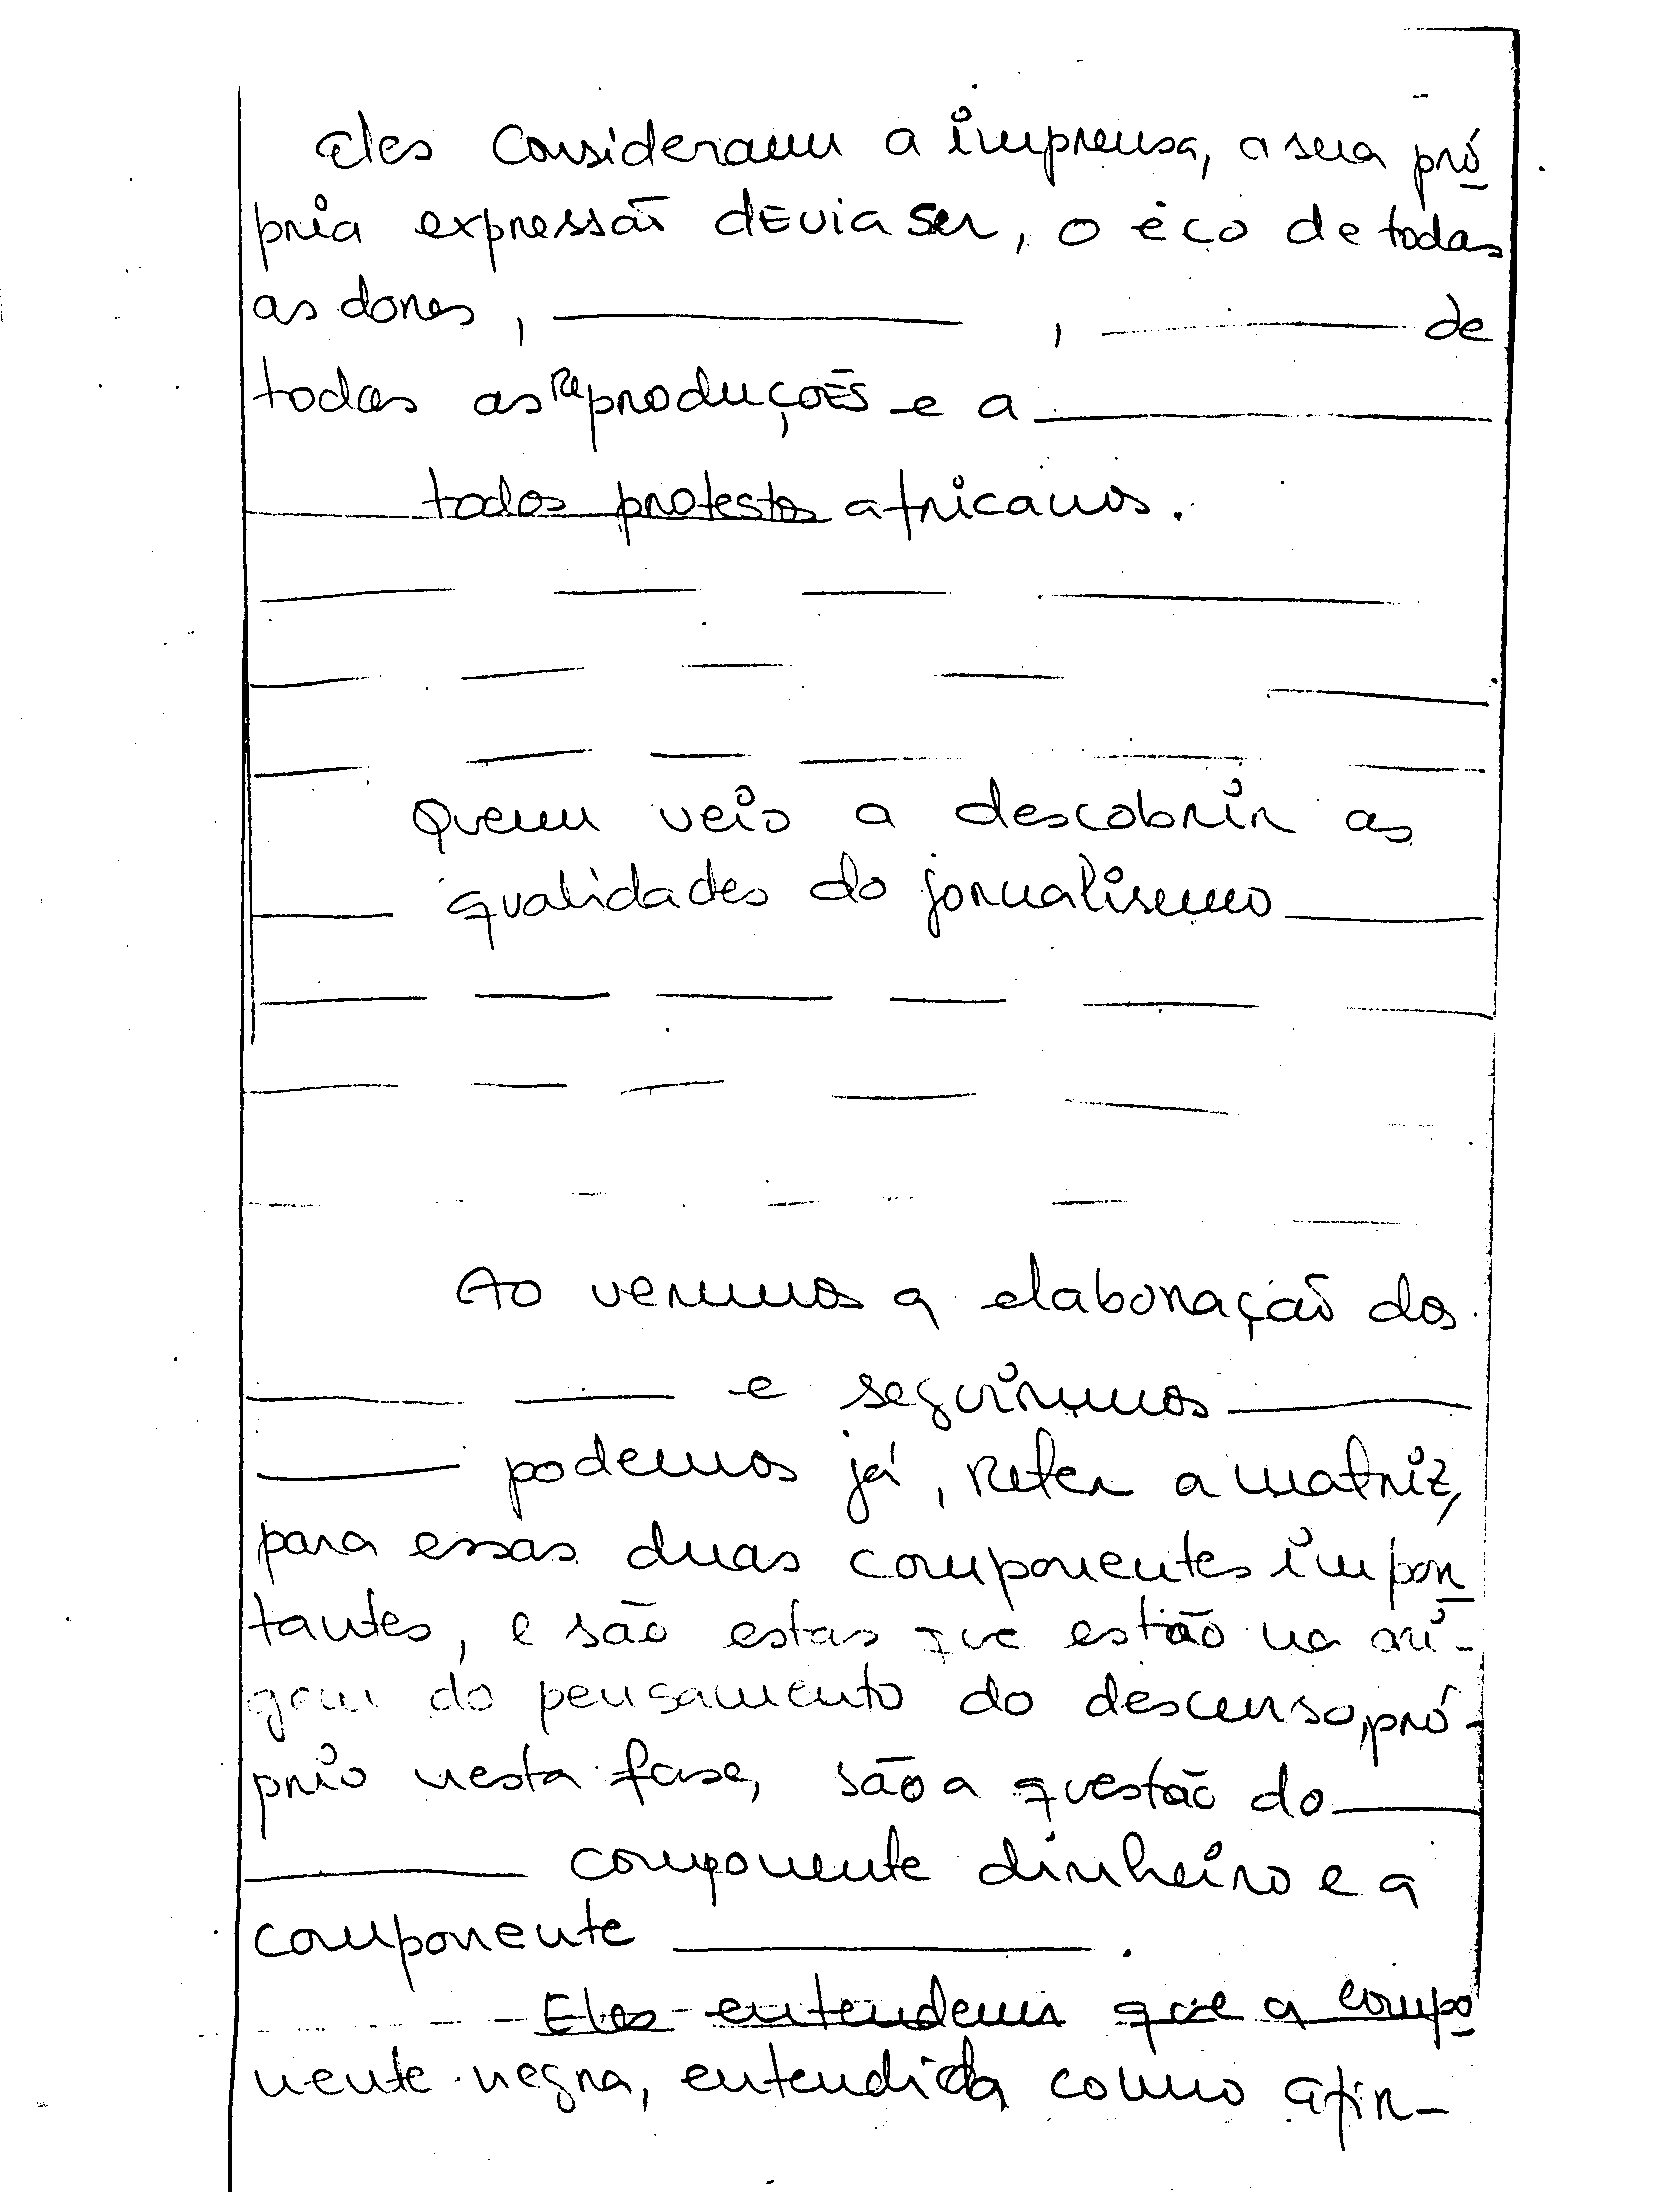 eles consideram a imprensa, a sua pró
pria expressão devia ser, o éco de todas
as dores, ________ , ________ de
todas as Reproduções e a ________
____ todos protestos africanos.
Quem veio a descobrir as
____ qualidades do jornalismo ____
Ao vermos a elaboração dos
____ ____ e seguirmos ____
____ podemos já, reter a matriz,
para essas duas componentes impor
tantes, e são estas que estão na ori-
gem do pensamento do descurso, pró-
prio nesta fase, são a questão do ____
____ componente dinheiro e a
componente ________ .
Eles entendem que a compo
nente negra, entendida como afir-